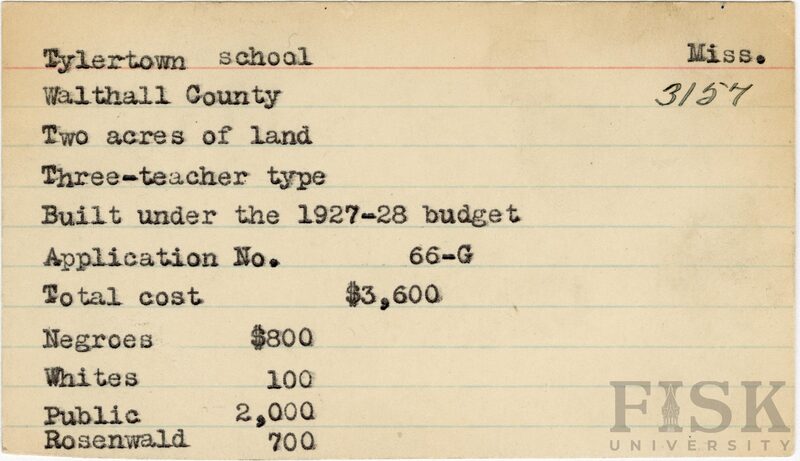 Tylertown school Miss.
Walthall County 3157
Two acres of land
Three-teacher type
Built under the 1927-28 budget
Application No. 66-G
Total cost $3,600
Negroes $800
Whites 100
Public 2,000
Rosenwald 700
FISK
UNIVERSITY